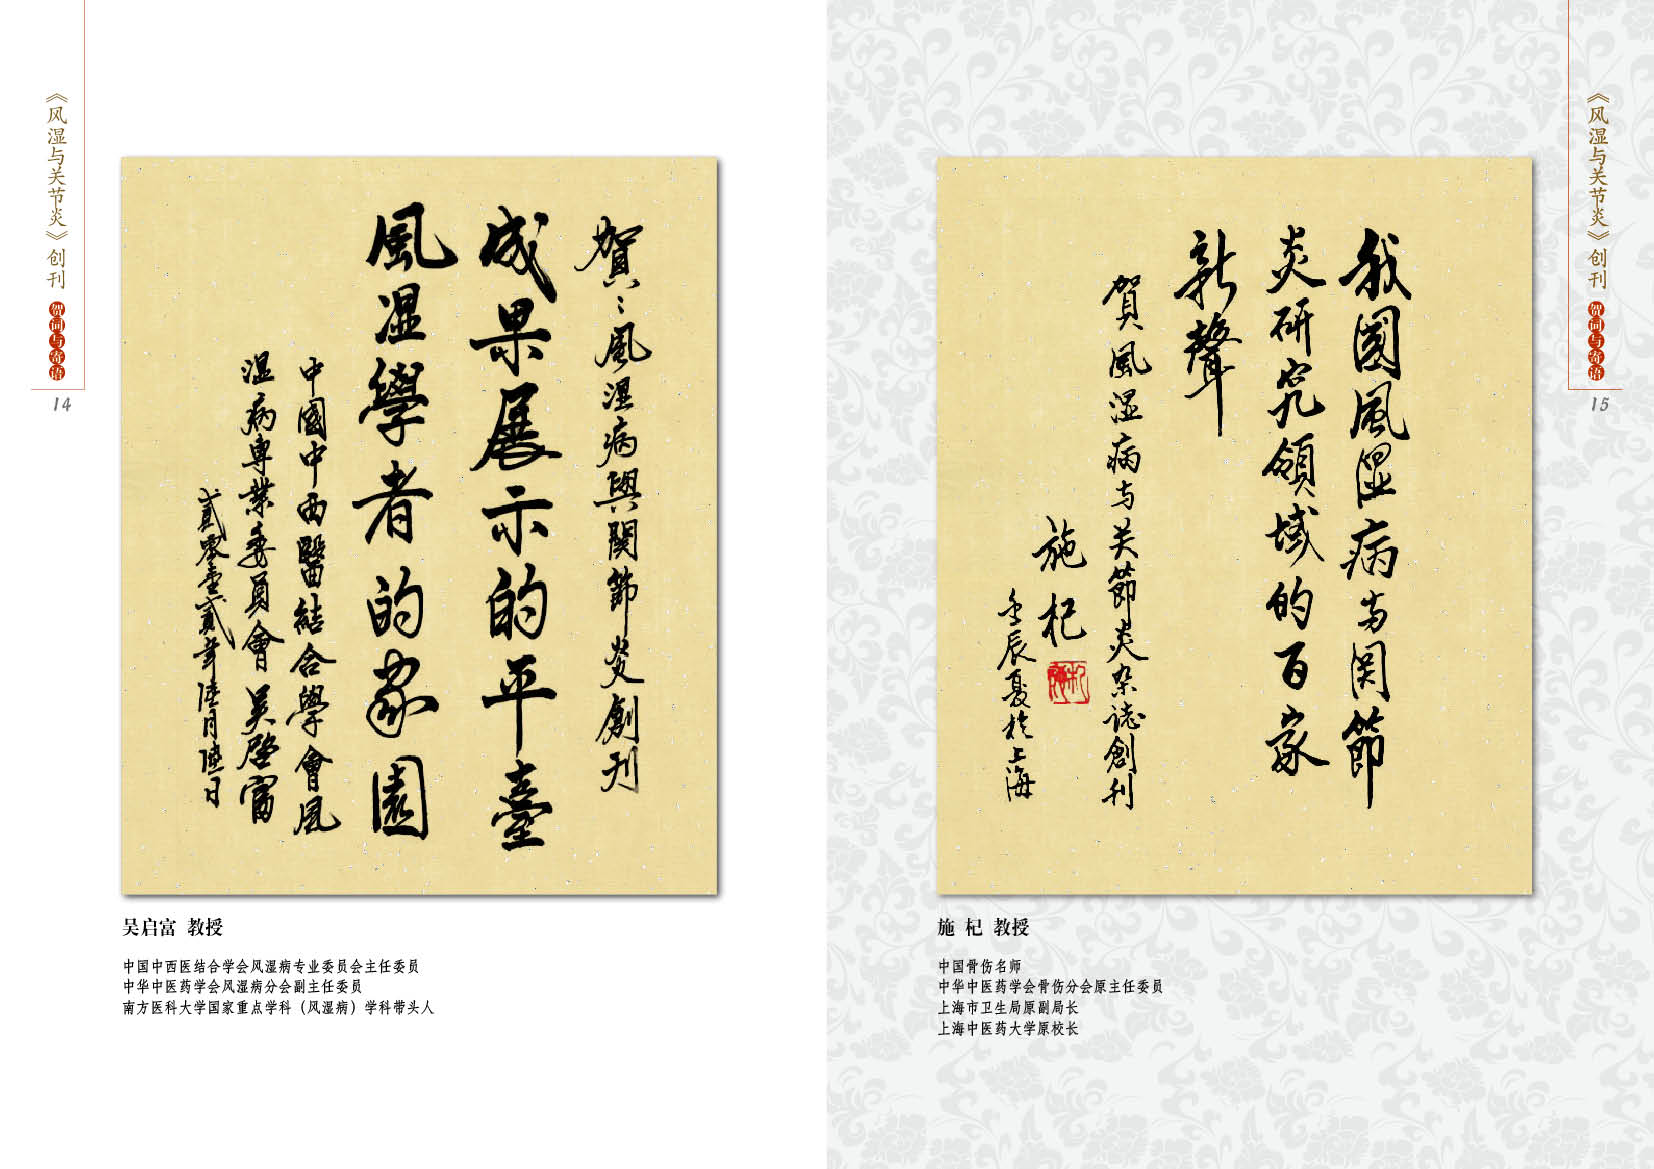 《风湿与关节炎》创刊
贺词与寄语
14
賀：風湿病與関節炎創刊
成果展示的平臺
風湿學者的家園
中國中西醫結合學會風
湿病専業委員會 吴啓富
贰零壹贰年陸月陸日
吴启富 教授
中国中西医结合学会风湿病专业委员会主任委员
中华中医药学会风湿病分会副主任委员
南方医科大学国家重点学科（风湿病）学科带头人
《风湿与关节炎》创刊
贺词与寄语
15
我國風湿病与関節
炎研究領域的百家
新聲
賀風湿病与关節炎杂誌創刊
施杞
壬辰夏於上海
施 杞 教授
中国骨伤名师
中华中医药学会骨伤分会原主任委员
上海市卫生局原副局长
上海中医药大学原校长